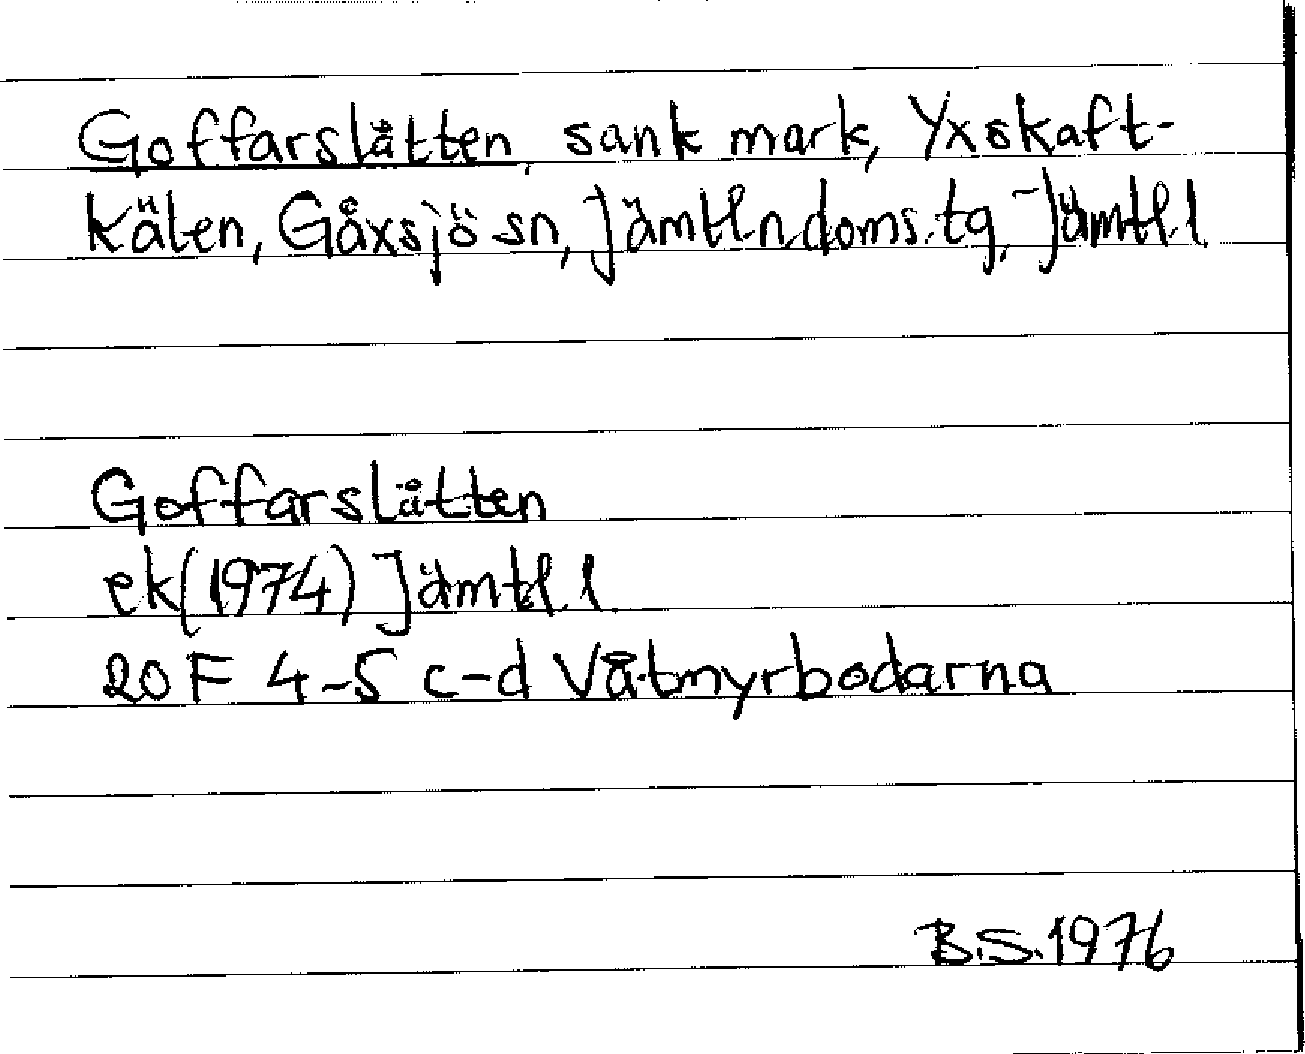 Goffarslåtten, sank mark, Yxskaft-
kälen, Gåxsjö sn, Jämtl.n.doms.tg, Jämtl.l
Goffarslåtten
ek(1974) Jämtl.l.
20F 4-5 c-d Våtmyrbodarna
B.S.1976